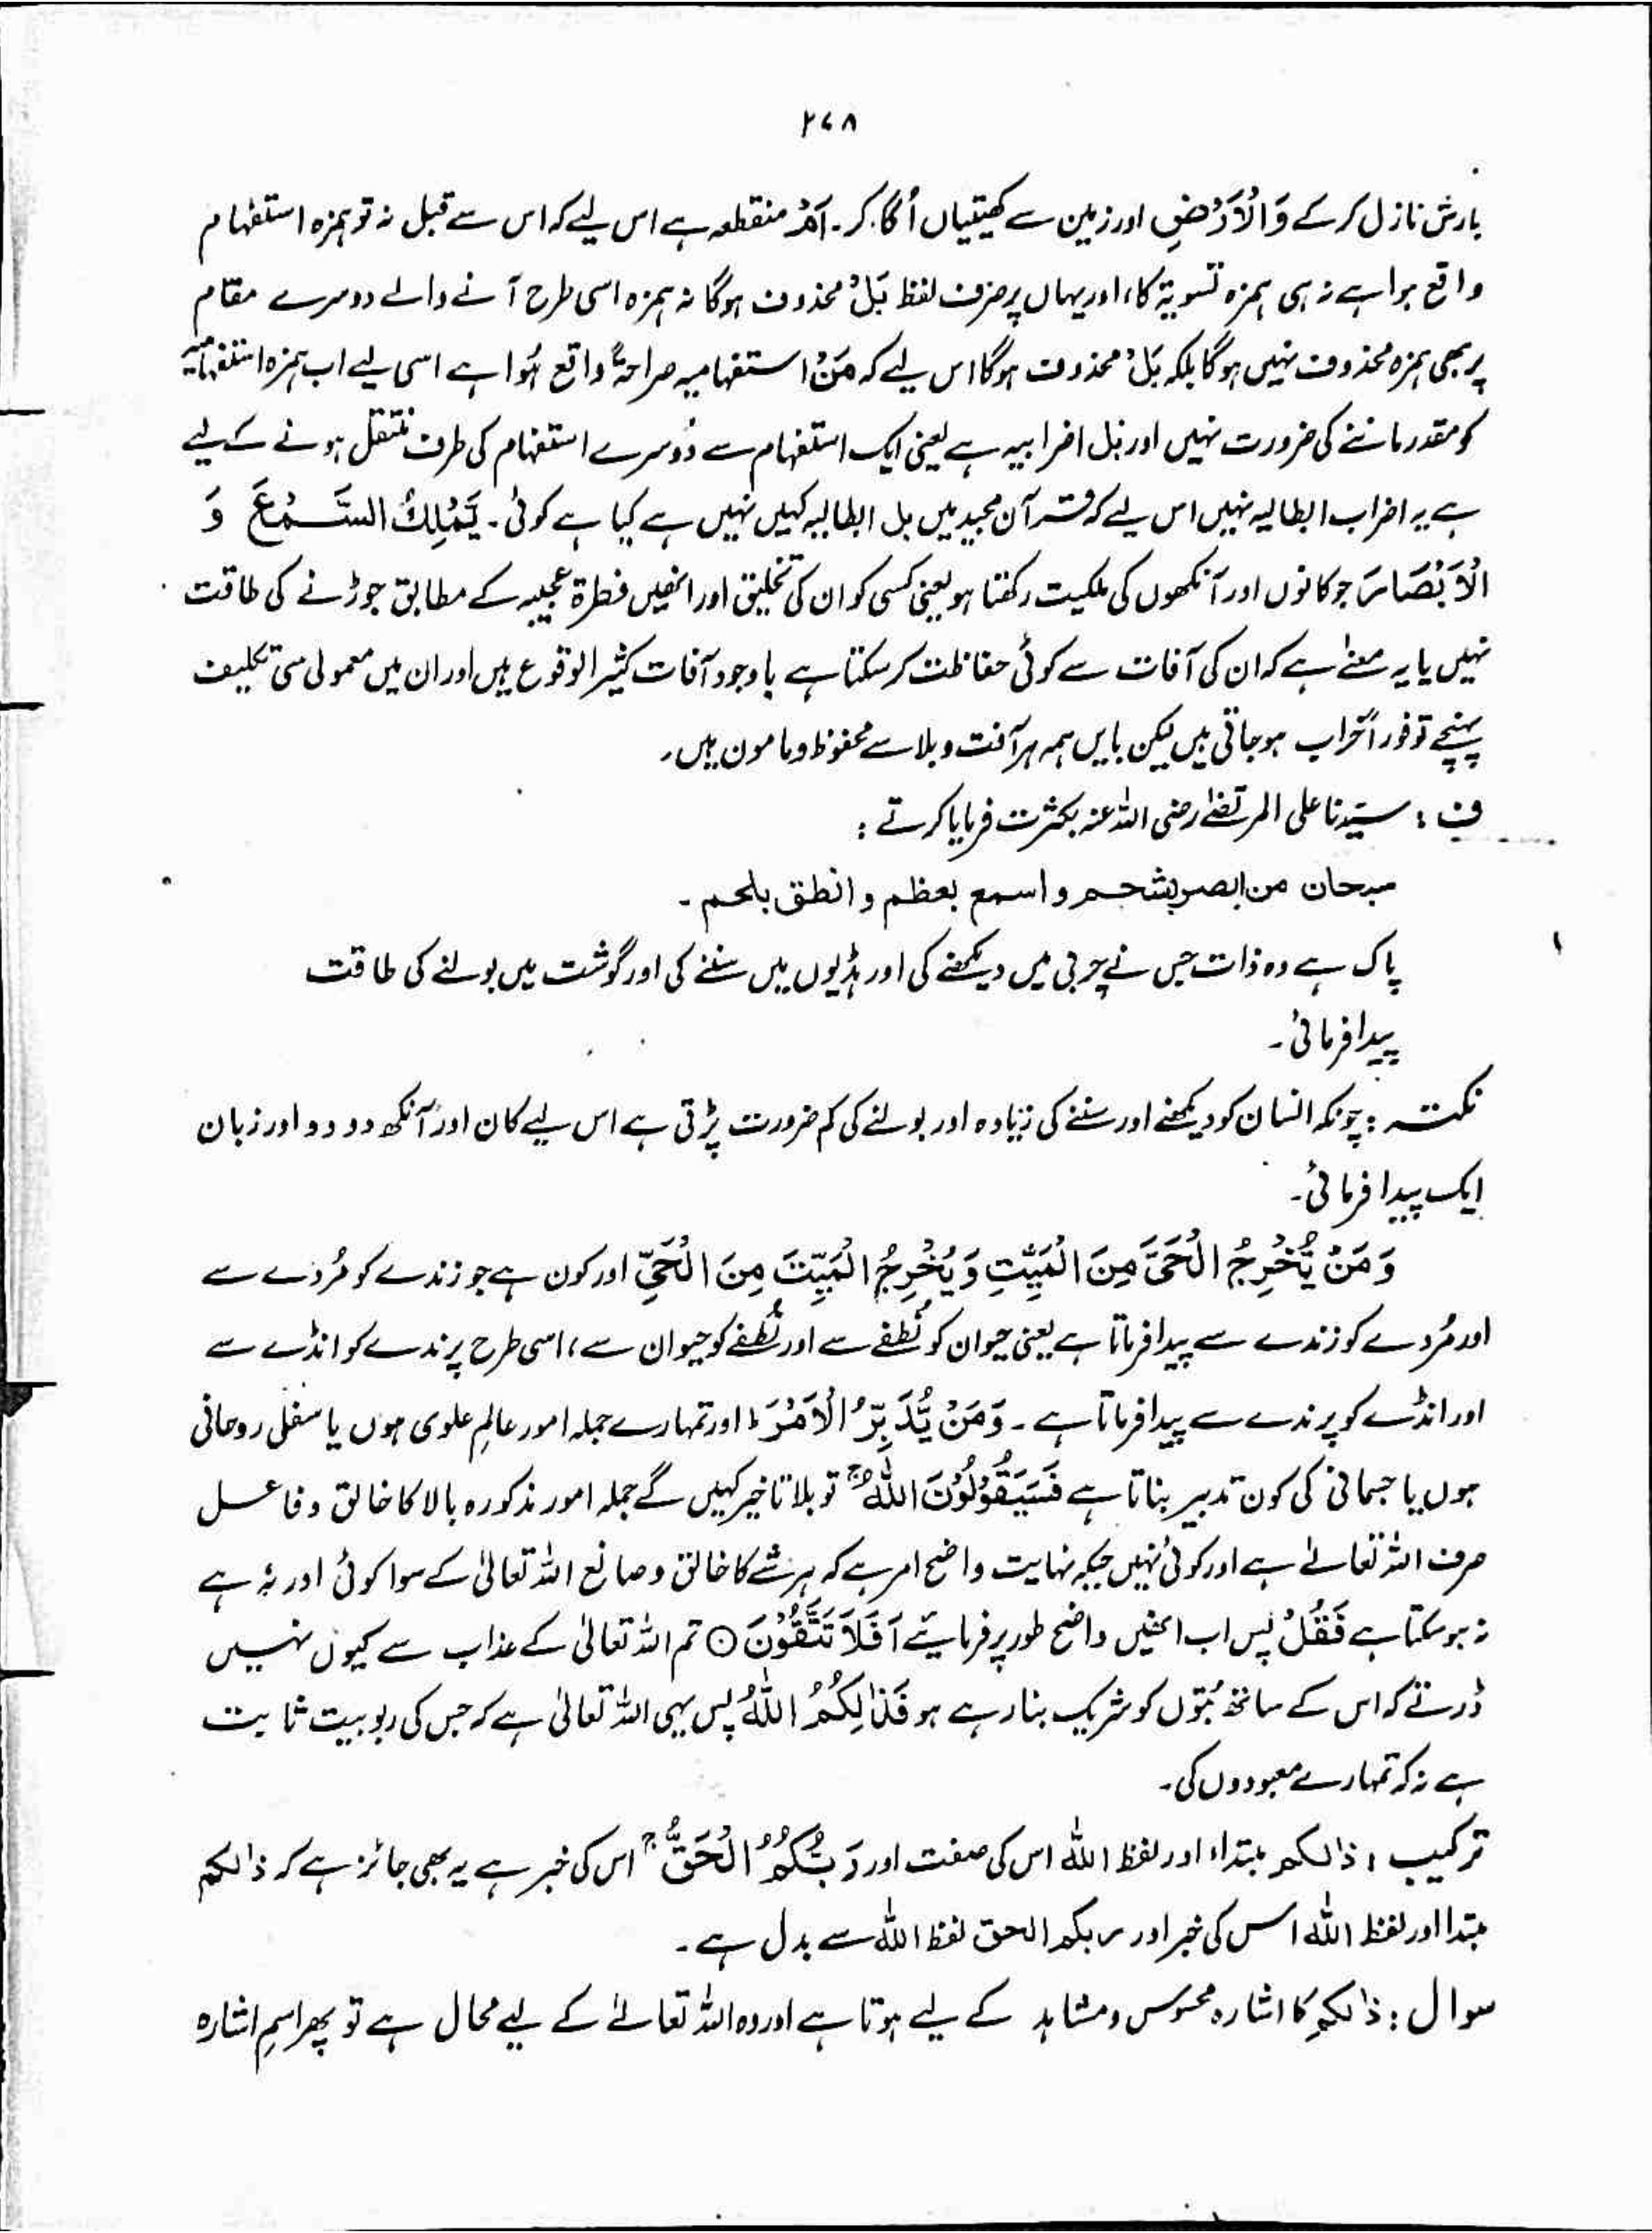 ۲۷۸
بارش نازل کرکے وَالْاَرْضِ اور زمین سے کھیتیاں اُگا کر۔ اَمْ منقطعہ ہے اس لیے کہ اس سے قبل نہ تو ہمزہ استفہام
واقع ہوا ہے نہ ہی ہمزہ تسویۃ کا، اور یہاں پر صرف لفظ بَلْ محذوف ہوگا نہ ہمزہ اسی طرح آنے والے دوسرے مقام
پر بھی ہمزہ محذوف نہیں ہوگا بلکہ بَلْ محذوف ہوگا اس لیے کہ مَنْ استفہامیہ صراحۃً واقع ہُوا ہے اسی لیے اب ہمزہ استفہامیہ
کو مقدر ماننے کی ضرورت نہیں اور بل اضرابیہ ہے یعنی ایک استفہام سے دُوسرے استفہام کی طرف منتقل ہونے کے لیے
ہے یہ اضراب ابطالیہ نہیں اس لیے کہ قرآن مجید میں بل ابطالیہ کہیں نہیں ہے کیا ہے کوئی۔ یَّمْلِكُ السَّمْعَ وَ
الْاَبْصَارَ جو کانوں اور آنکھوں کی ملکیت رکھتا ہو یعنی کسی کو ان کی تخلیق اور انھیں فطرۃ عجیبہ کے مطابق جوڑنے کی طاقت
نہیں یا یہ معنےٰ ہے کہ ان کی آفات سے کوئی حفاظت کرسکتا ہے باوجود آفات کثیر الوقوع ہیں اور ان میں معمولی سی تکلیف
پہنچے تو فوراً خراب ہوجاتی ہیں لیکن بایں ہمہ ہر آفت و بلا سے محفوظ و مامون ہیں۔
ف : سیّدنا علی المرتضےٰ رضی اللہ عنہ بکثرت فرمایا کرتے :
سبحان من ابصر بشحم و اسمع بعظم و انطق بلحم۔
پاک ہے وہ ذات جس نے چربی میں دیکھنے کی اور ہڈیوں میں سننے کی اور گوشت میں بولنے کی طاقت
پیدا فرمائی۔
نکتہ : چونکہ انسان کو دیکھنے اور سننے کی زیادہ اور بولنے کی کم ضرورت پڑتی ہے اس لیے کان اور آنکھ دو دو اور زبان
ایک پیدا فرمائی۔
وَ مَنْ یُّخْرِجُ الْحَیَّ مِنَ الْمَیِّتِ وَ یُخْرِجُ الْمَیِّتَ مِنَ الْحَیِّ اور کون ہے جو زندے کو مُردے سے
اور مُردے کو زندے سے پیدا فرماتا ہے یعنی حیوان کو نُطفے سے اور نُطفے کو حیوان سے، اسی طرح پرندے کو انڈے سے
اور انڈے کو پرندے سے پیدا فرماتا ہے۔ وَمَنْ یُّدَبِّرُ الْاَمْرَ ؕ اور تمہارے جملہ امور عالمِ علوی ہوں یا سفلی روحانی
ہوں یا جسمانی کی کون تدبیر بناتا ہے فَسَیَقُوْلُوْنَ اللّٰہُ ۚ تو بلا تاخیر کہیں گے جملہ امور مذکورہ بالا کا خالق و فاعل
صرف اللہ تعالےٰ ہے اور کوئی نہیں جبکہ نہایت واضح امر ہے کہ ہر شے کا خالق و صانع اللہ تعالیٰ کے سوا کوئی اور نہ ہے
نہ ہوسکتا ہے فَقُلْ پس اب انھیں واضح طور پر فرمائیے اَفَلَا تَتَّقُوْنَ ○ تم اللہ تعالیٰ کے عذاب سے کیوں نہیں
ڈرتے کہ اس کے ساتھ بُتوں کو شریک بنا رہے ہو فَذٰلِکُمُ اللّٰہُ پس یہی اللہ تعالیٰ ہے کہ جس کی ربوبیت ثابت
ہے نہ کہ تمہارے معبودوں کی۔
ترکیب : ذالکم مبتداء اور لفظ اللہ اس کی صفت اور رَبُّکُمُ الْحَقُّ ۚ اس کی خبر ہے یہ بھی جائز ہے کہ ذالکم
مبتدا اور لفظ اللہ اس کی خبر اور ربکم الحق لفظ اللہ سے بدل ہے۔
سوال : ذالکم کا اشارہ محسوس و مشاہد کے لیے ہوتا ہے اور وہ اللہ تعالےٰ کے لیے محال ہے تو پھر اسمِ اشارہ